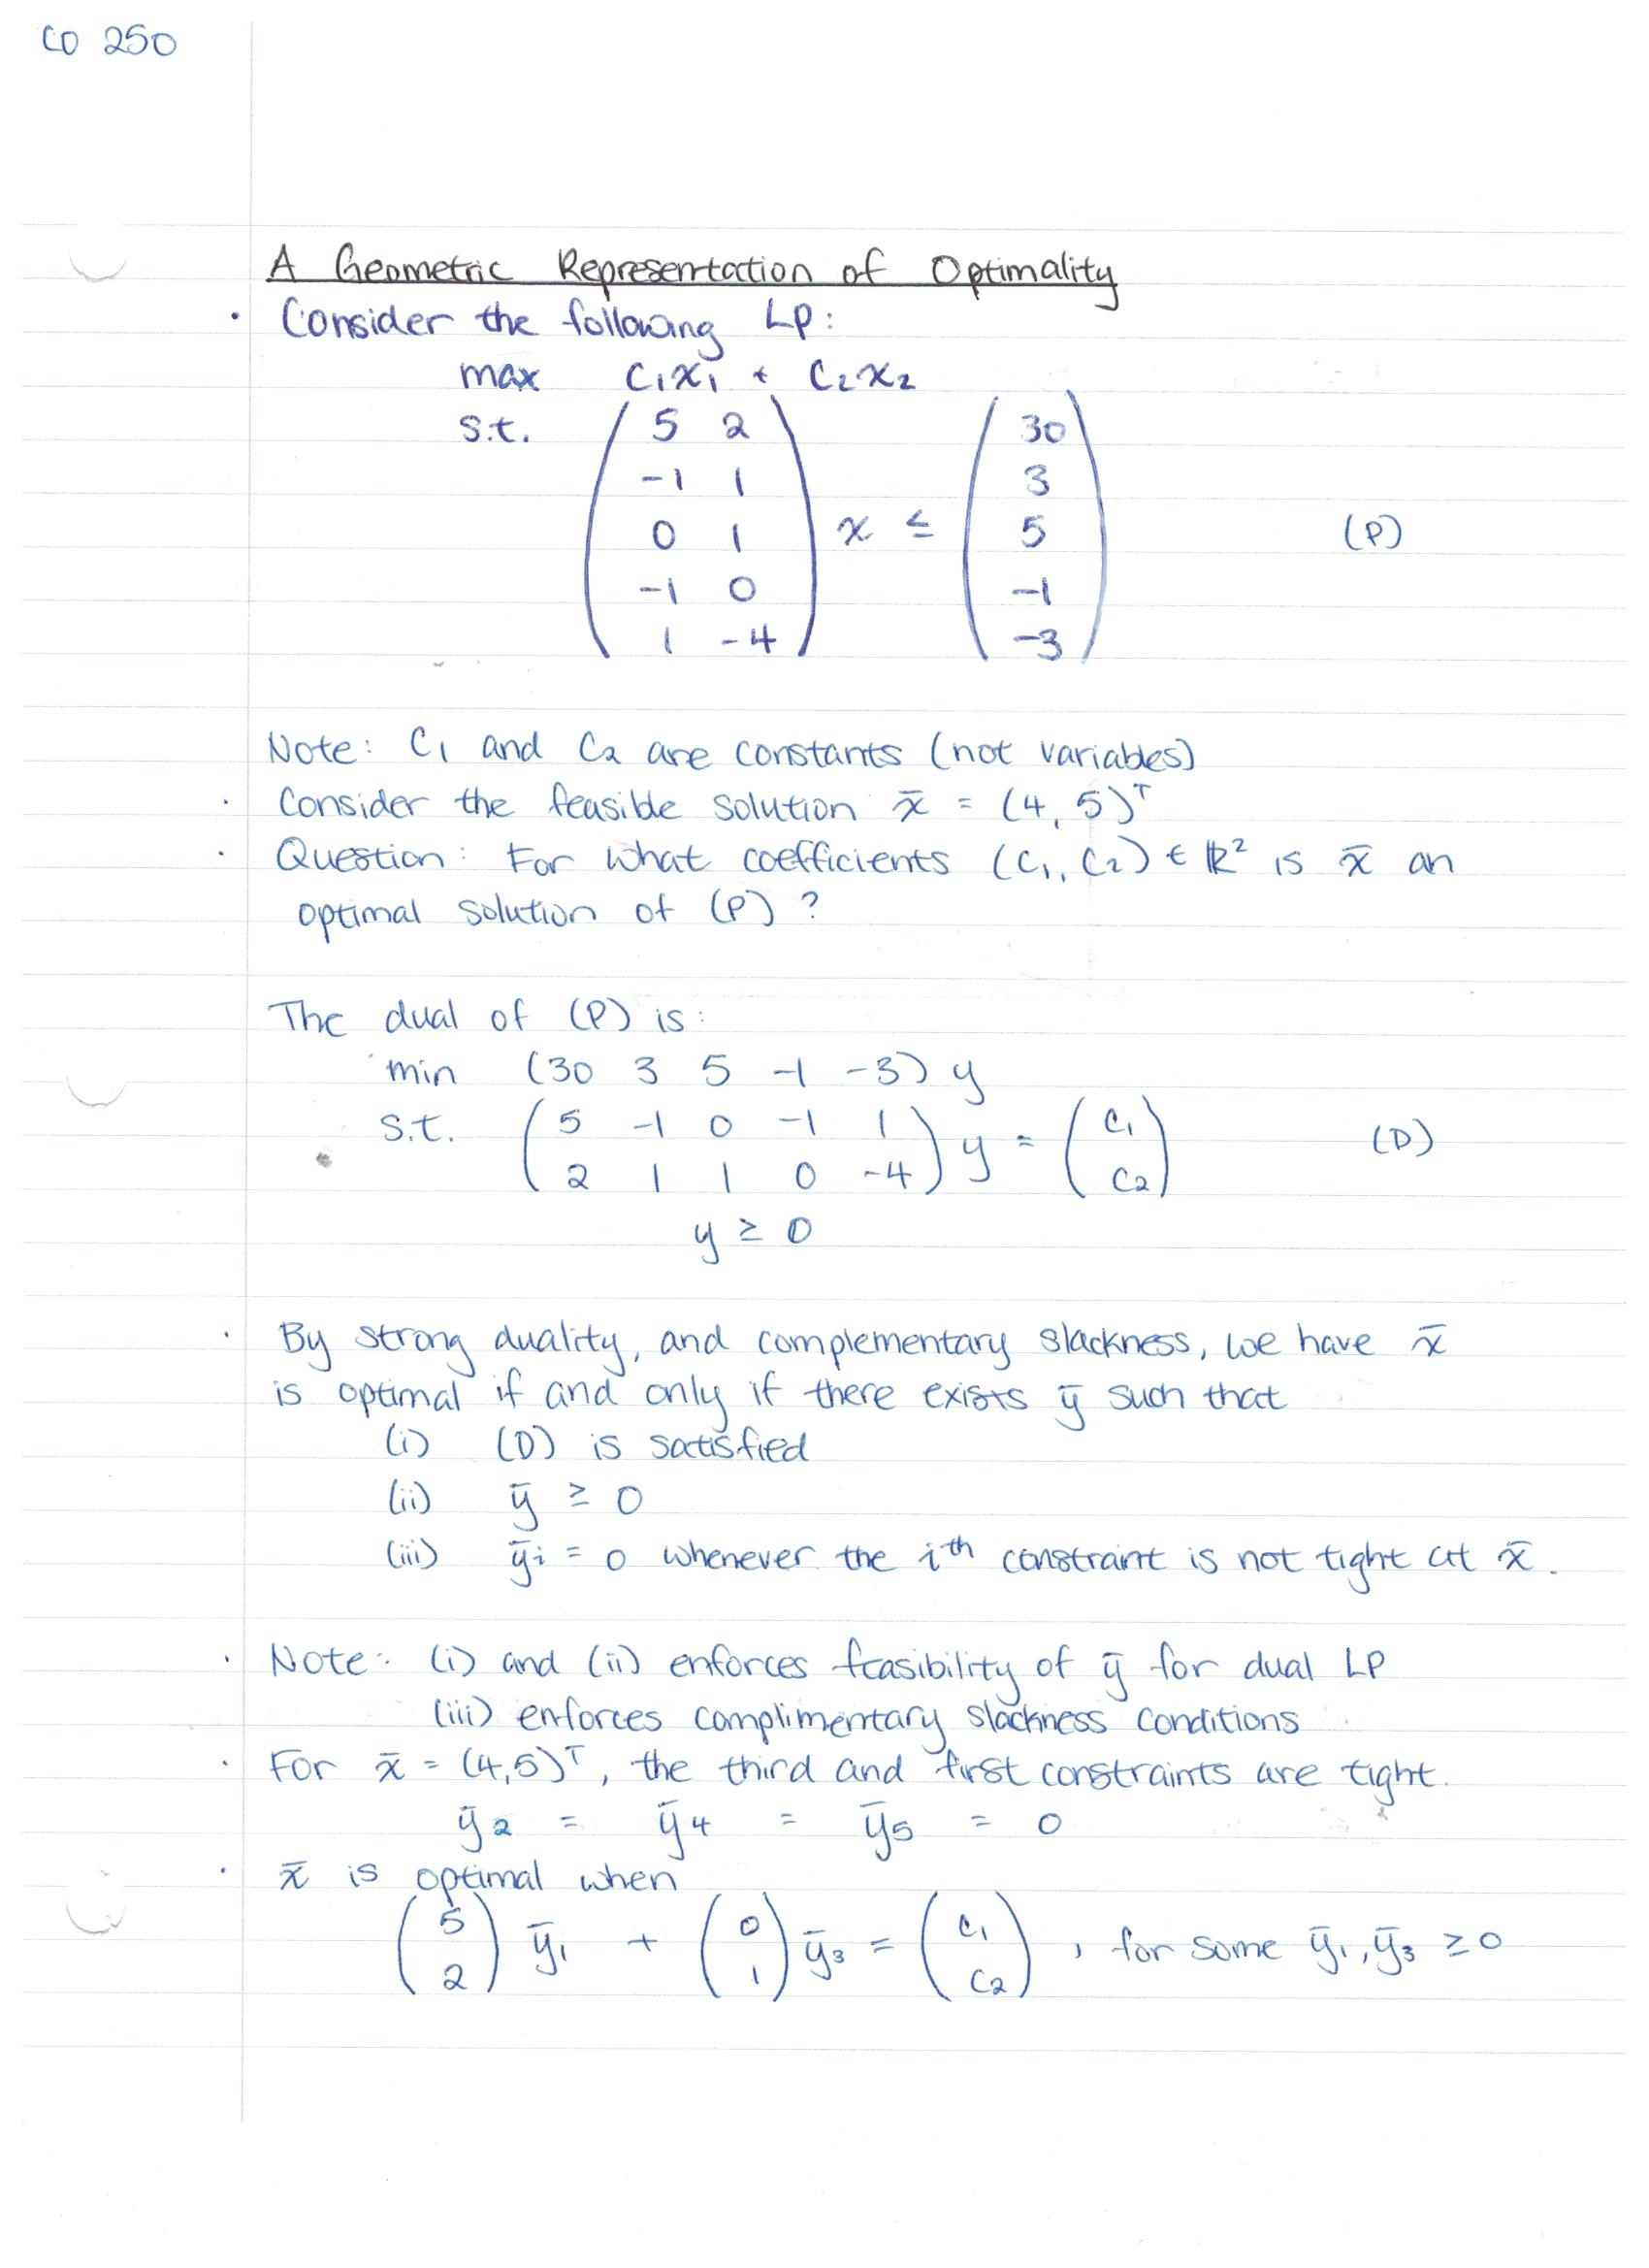 CO 250
A Geometric Representation of Optimality
· Consider the following LP:
max C₁x₁ + C₂x₂
s.t. ( 5 2 ) ( 30 )
( -1 1 ) ( 3 )
( 0 1 ) x ≤ ( 5 ) (P)
( -1 0 ) ( -1 )
( 1 -4 ) ( -3 )
Note: C₁ and C₂ are constants (not variables)
· Consider the feasible solution x̄ = (4, 5)ᵀ
· Question: For what coefficients (C₁, C₂) ∈ ℝ² is x̄ an
optimal solution of (P) ?
The dual of (P) is:
min (30 3 5 -1 -3) y
s.t. ( 5 -1 0 -1 1 ) y = ( C₁ ) (D)
( 2 1 1 0 -4 ) ( C₂ )
y ≥ 0
· By strong duality, and complementary slackness, we have x̄
is optimal if and only if there exists ȳ such that
(i) (D) is satisfied
(ii) ȳ ≥ 0
(iii) ȳᵢ = 0 whenever the iᵗʰ constraint is not tight at x̄.
· Note: (i) and (ii) enforces feasibility of ȳ for dual LP
(iii) enforces complimentary slackness conditions
· For x̄ = (4,5)ᵀ, the third and first constraints are tight.
ȳ₂ = ȳ₄ = ȳ₅ = 0
· x̄ is optimal when
( 5 ) ȳ₁ + ( 0 ) ȳ₃ = ( C₁ ) , for some ȳ₁, ȳ₃ ≥ 0
( 2 ) ( 1 ) ( C₂ )